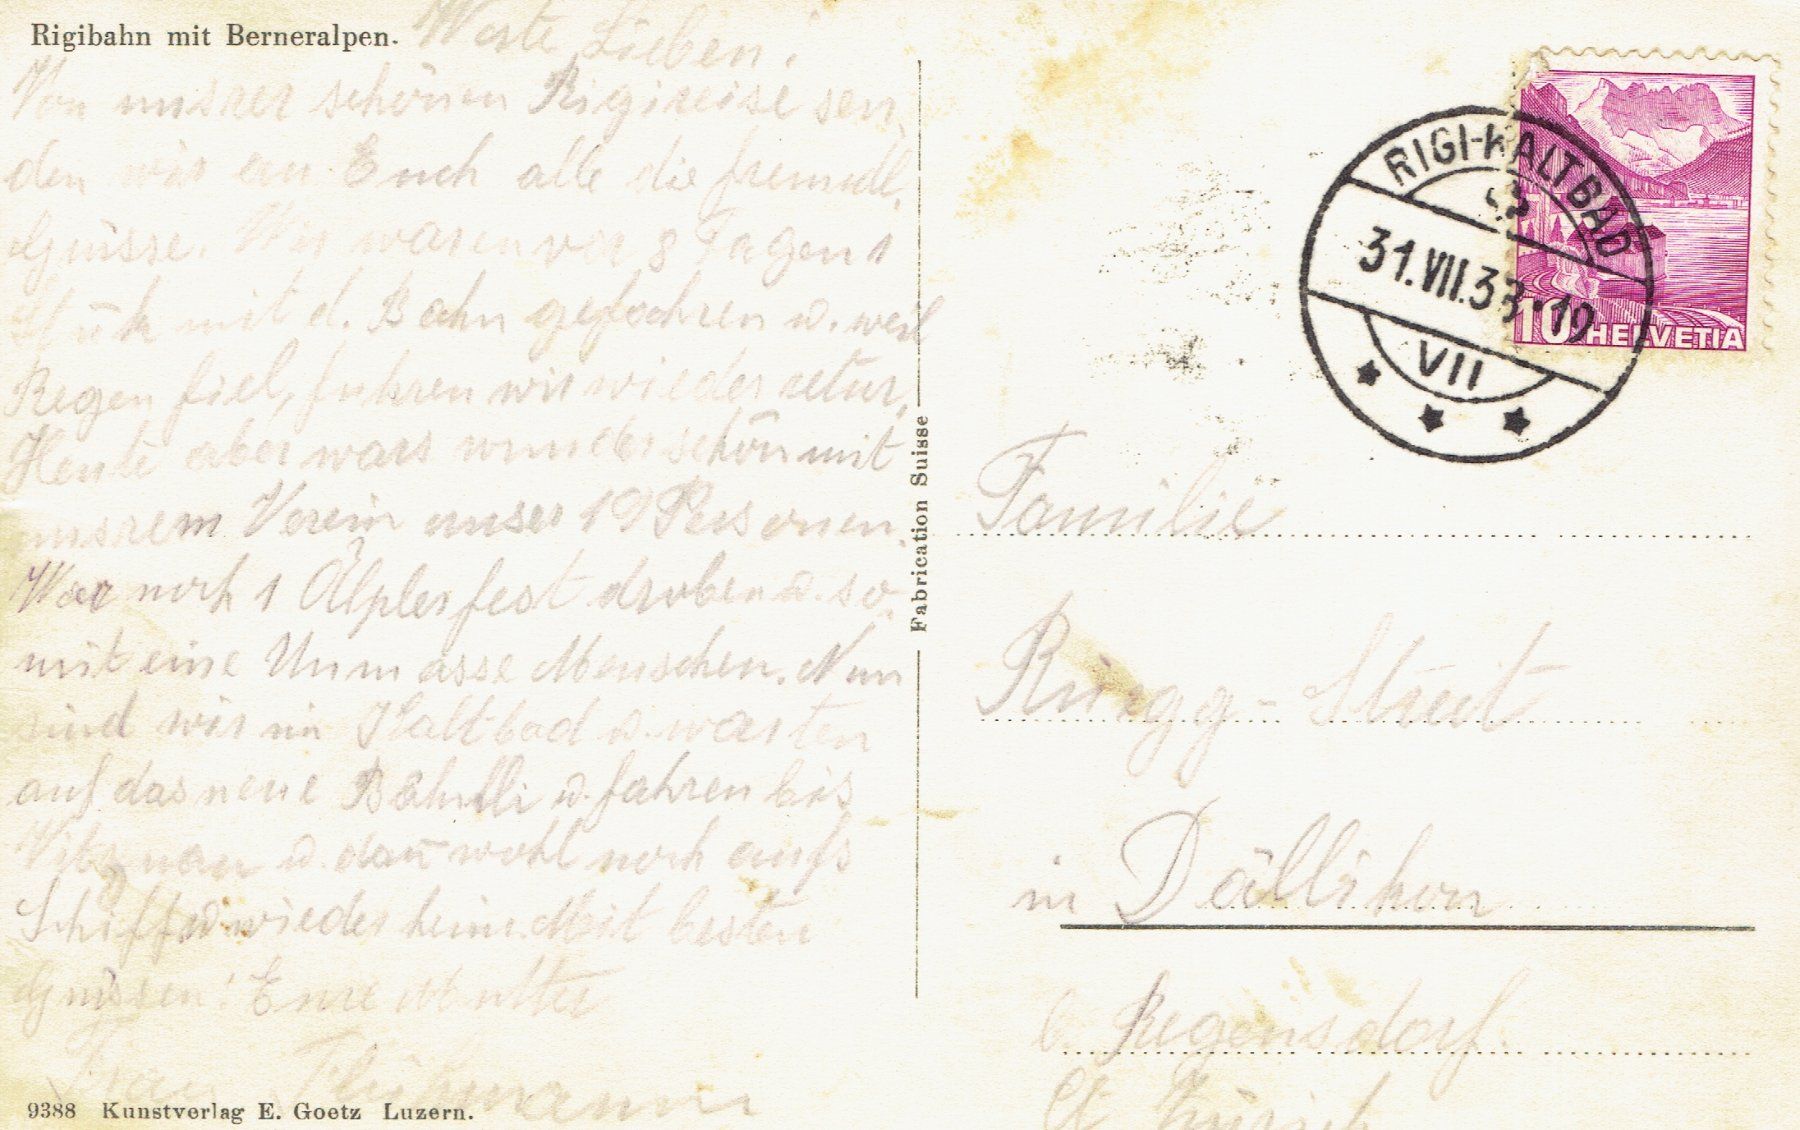 Rigibahn mit Berneralpen.
Werte Lieben!
Von unsrer schönen Rigireise sen-
den wir an Euch alle die freundl.
Grüsse. Wir waren vor 8 Tagen 1
Stük mit d. Bahn gefahren u. weil
Regen fiel, fuhren wir wieder retur.
Heute aber wars wunderschön mit
unsrem Verein unser 19 Personen.
War noch 1 Älplerfest droben u. so-
mit eine Unmasse Menschen. Nun
sind wir in Kaltbad u. warten
auf das neue Bähnli u. fahren bis
Vitznau u. dan̄ wohl noch aufs
Schiff u. wieder heim. Mit besten
Grüssen! Eure Mutter
Frau Flühmann
9388 Kunstverlag E. Goetz Luzern.
Fabrication Suisse
RIGI-KALTBAD
31.VII.38-19
VII
10 HELVETIA
Familie
Rüegg-Streit
in Dällikon
b. Regensdorf.
Ct. Zürich